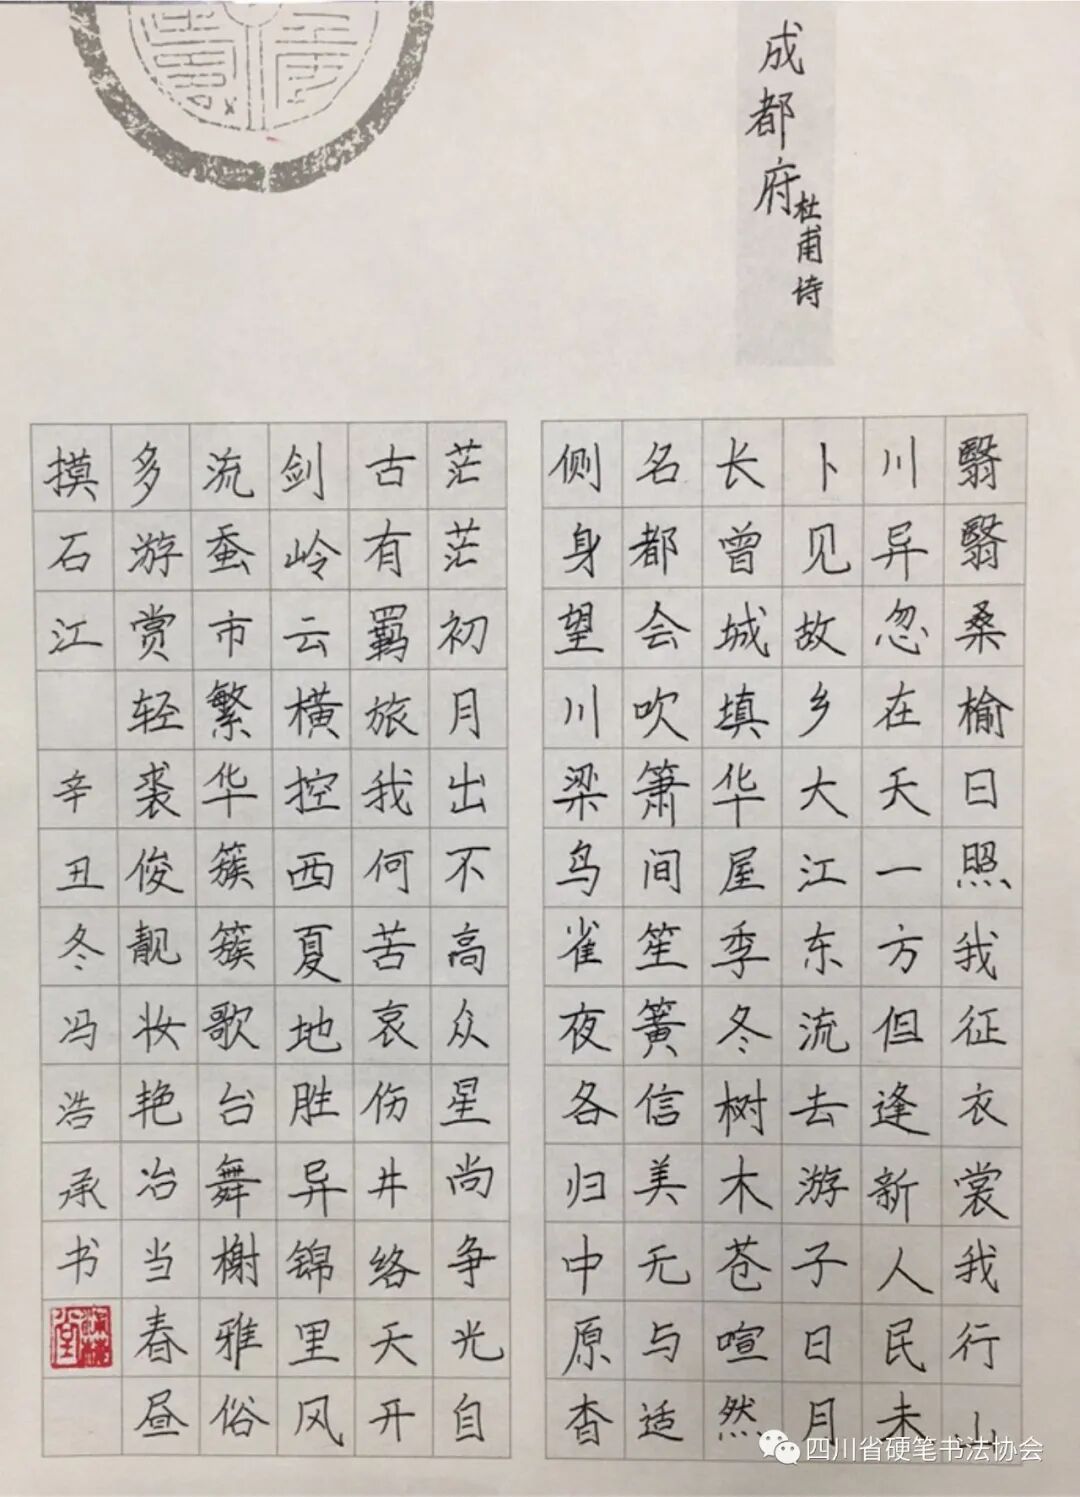 成都府
杜甫诗
翳翳桑榆日照我征衣裳我行山
川异忽在天一方但逢新人民未
卜见故乡大江东流去游子日月
长曾城填华屋季冬树木苍喧然
名都会吹箫间笙簧信美无与适
侧身望川梁鸟雀夜各归中原杳
茫茫初月出不高众星尚争光自
古有羁旅我何苦哀伤井络天开
剑岭云横控西夏地胜异锦里风
流蚕市繁华簇簇歌台舞榭雅俗
多游赏轻裘俊靓妆艳冶当春昼
摸石江 辛丑冬冯浩承书
四川省硬笔书法协会